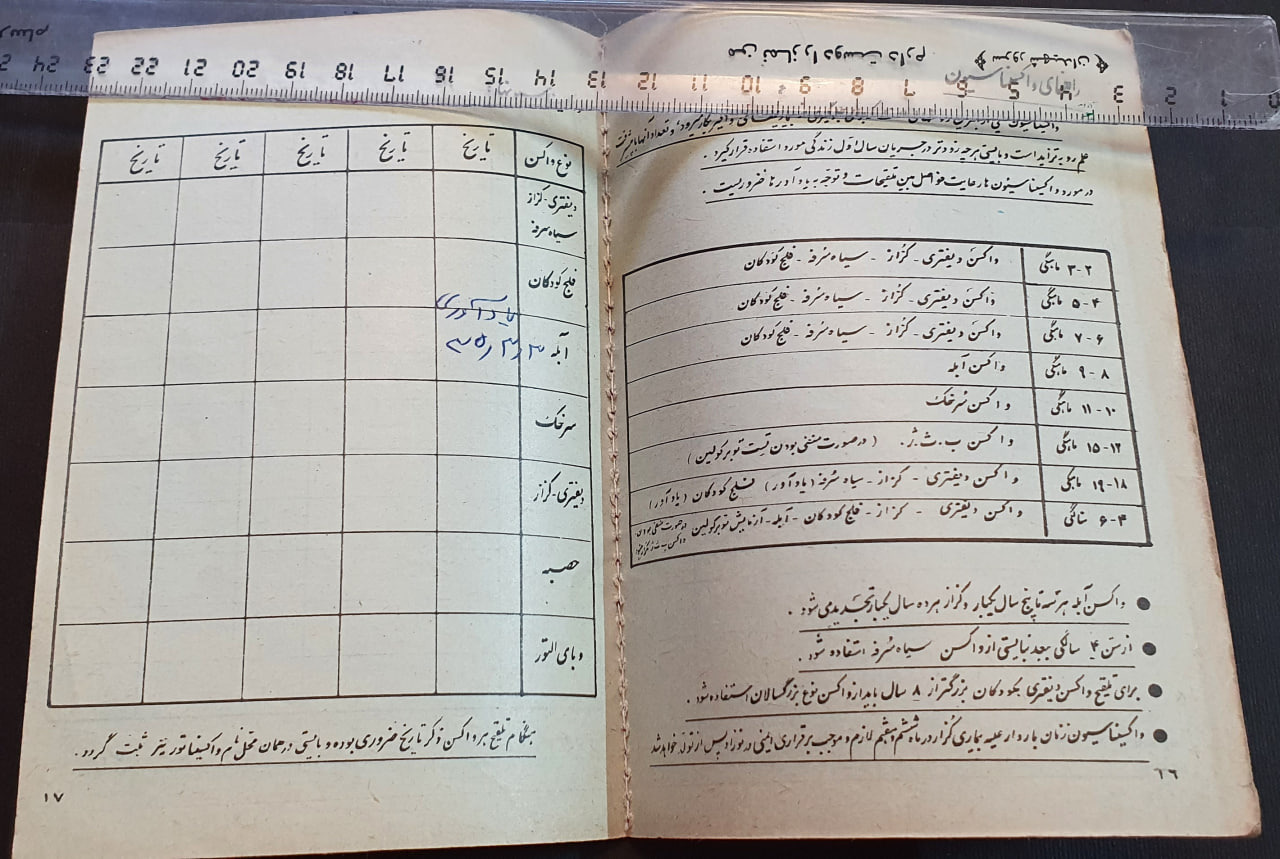 من نماز را دوست دارم
سرور شهیدان
راهنمای واکسیناسیون
علم رو به تزاید است و بایستی هرچه زودتر در جریان سال اول زندگی مورد استفاده قرار گیرد .
در مورد واکسیناسیون ها رعایت فواصل بین تلقیحات و توجه به یادآورها ضروریست .
۲-۳ ماهگی واکسن دیفتری - کزاز - سیاه سرفه - فلج کودکان
۴-۵ ماهگی واکسن دیفتری - کزاز - سیاه سرفه - فلج کودکان
۶-۷ ماهگی واکسن دیفتری - کزاز - سیاه سرفه - فلج کودکان
۸-۹ ماهگی واکسن آبله
۱۰-۱۱ ماهگی واکسن سرخک
۱۲-۱۵ ماهگی واکسن ب . ث . ژ . ( در صورت منفی بودن تست توبرکولین )
۱۸-۱۹ ماهگی واکسن دیفتری - کزاز - سیاه سرفه ( یادآور ) فلج کودکان ( یادآور )
۴-۶ سالگی واکسن دیفتری - کزاز - فلج کودکان - آبله - آزمایش توبرکولین در صورت منفی بودن
● واکسن آبله هر سه تا پنج سال یکبار و کزاز هر ده سال یکبار تجدید می شود .
● از سن ۴ سالگی ببعد نبایستی از واکسن سیاه سرفه استفاده شود .
● برای تلقیح واکسن دیفتری بکودکان بزرگتر از ۸ سال باید از واکسن نوع بزرگسالان استفاده شود .
● واکسیناسیون زنان باردار علیه بیماری کزاز در ماه ششم و هشتم لازم و موجب برقراری ایمنی در نوزاد پس از تولد خواهد شد
۱۶
نوع واکسن تاریخ تاریخ تاریخ تاریخ تاریخ
دیفتری - کزاز
سیاه سرفه
فلج کودکان
یادآوری
آبله
سرخک
دیفتری - کزاز
حصبه
وبای التور
هنگام تلقیح هر واکسن ذکر تاریخ ضروری بوده و بایستی در همان محل نام واکسیناتور نیز ثبت گردد .
۱۷
0 1 2 3 4 5 6 7 8 9 10 11 12 13 14 15 16 17 18 19 20 21 22 23 24